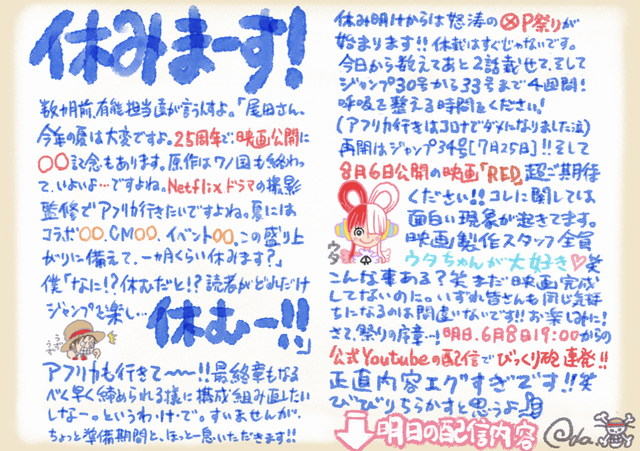 休みまーす!
数カ月前、有能担当直が言うんすよ。「尾田さん、
今年の夏は大変ですよ。25周年で:映画公開に
〇〇記念もあります。原作はワノ国も終わっ
て、いよいよ…ですよね。Netflixドラマの撮影
監修でアフリカ行きたいですよね。夏には
コラボ〇〇、CM〇〇、イベント〇〇。この盛り上
がりに備えて、一カ月くらい休みます?」
僕「なに!?休むだと!?読者がどれだけ
ジャンプで楽し…
休むー!!」
うずうず
アフリカも行きて〜〜!!最終章もなる
べく早く締められる様に構成組み直したい
しなー。というわ・け・で。すいませんが、
ちょっと準備期間と、ほっと一息いただきます!!
休み明けからは怒涛の〇P祭りが
始まります!!休載はすぐじゃないです。
今日から数えてあと2話載せて、そして
ジャンプ30号から33号まで4週間!
呼吸を整える時間をください!
(アフリカ行きはコロナでダメになりました泣)
再開はジャンプ34号[7月25日]!!そして
8月6日公開の映画「RED」超ご期待
ください!!コレに関しては
面白い現象が起きてます。
映画製作スタッフ全員
ウタちゃんが大好き♡笑
ウタ
こんな事ある?笑まだ映画完成
してないのに。いずれ皆さんも同じ気持
ちになるのは間違いないです!!お楽しみに!
さて、祭りの序章…!明日、6月8日19:00からの
公式Youtubeの配信でびっくり砲連発!!
正直内容エグすぎです!!笑
びびりちらかすと思うよ
明日の配信内容
@da